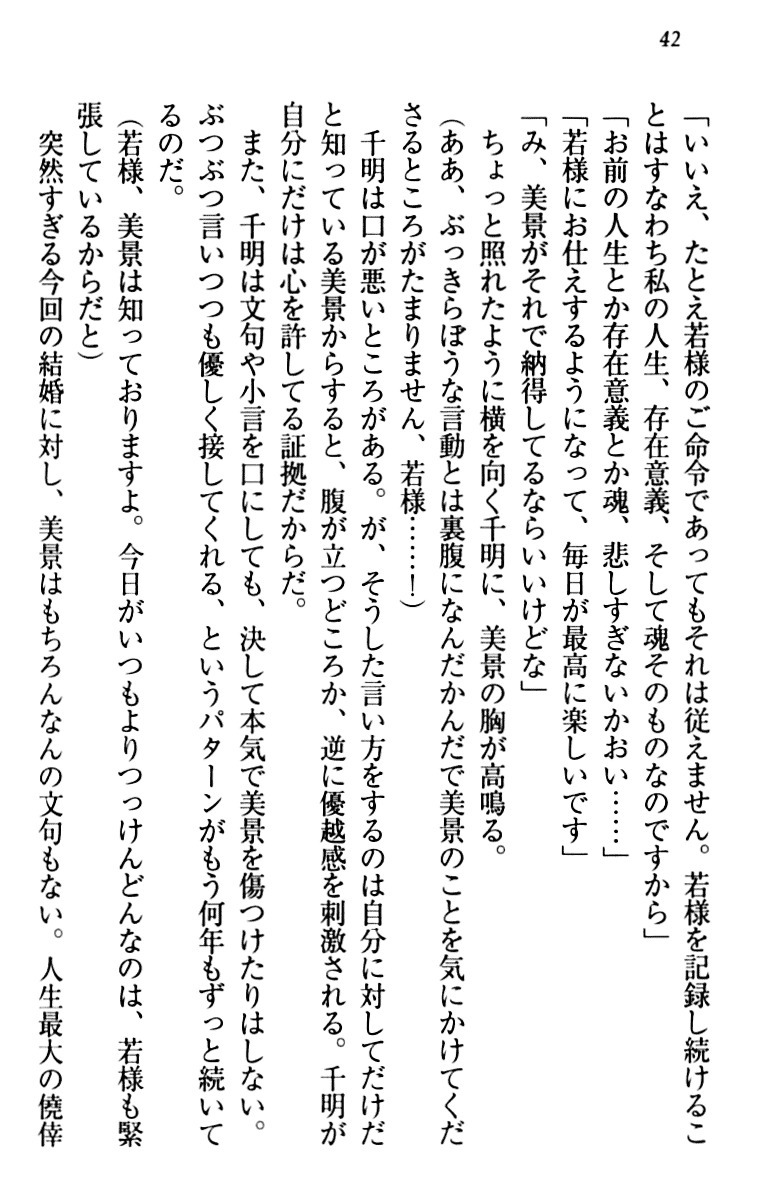 42
「いいえ、たとえ若様のご命令であってもそれは従えません。若様を記録し続けるこ
とはすなわち私の人生、存在意義、そして魂そのものなのですから」
「お前の人生とか存在意義とか魂、悲しすぎないかおい……」
「若様にお仕えするようになって、毎日が最高に楽しいです」
「み、美景がそれで納得してるならいいけどな」
ちょっと照れたように横を向く千明に、美景の胸が高鳴る。
（ああ、ぶっきらぼうな言動とは裏腹になんだかんだで美景のことを気にかけてくだ
さるところがたまりません、若様……！）
千明は口が悪いところがある。が、そうした言い方をするのは自分に対してだけだ
と知っている美景からすると、腹が立つどころか、逆に優越感を刺激される。千明が
自分にだけは心を許してる証拠だからだ。
また、千明は文句や小言を口にしても、決して本気で美景を傷つけたりはしない。
ぶつぶつ言いつつも優しく接してくれる、というパターンがもう何年もずっと続いて
るのだ。
（若様、美景は知っておりますよ。今日がいつもよりつっけんどんなのは、若様も緊
張しているからだと）
突然すぎる今回の結婚に対し、美景はもちろんなんの文句もない。人生最大の僥倖